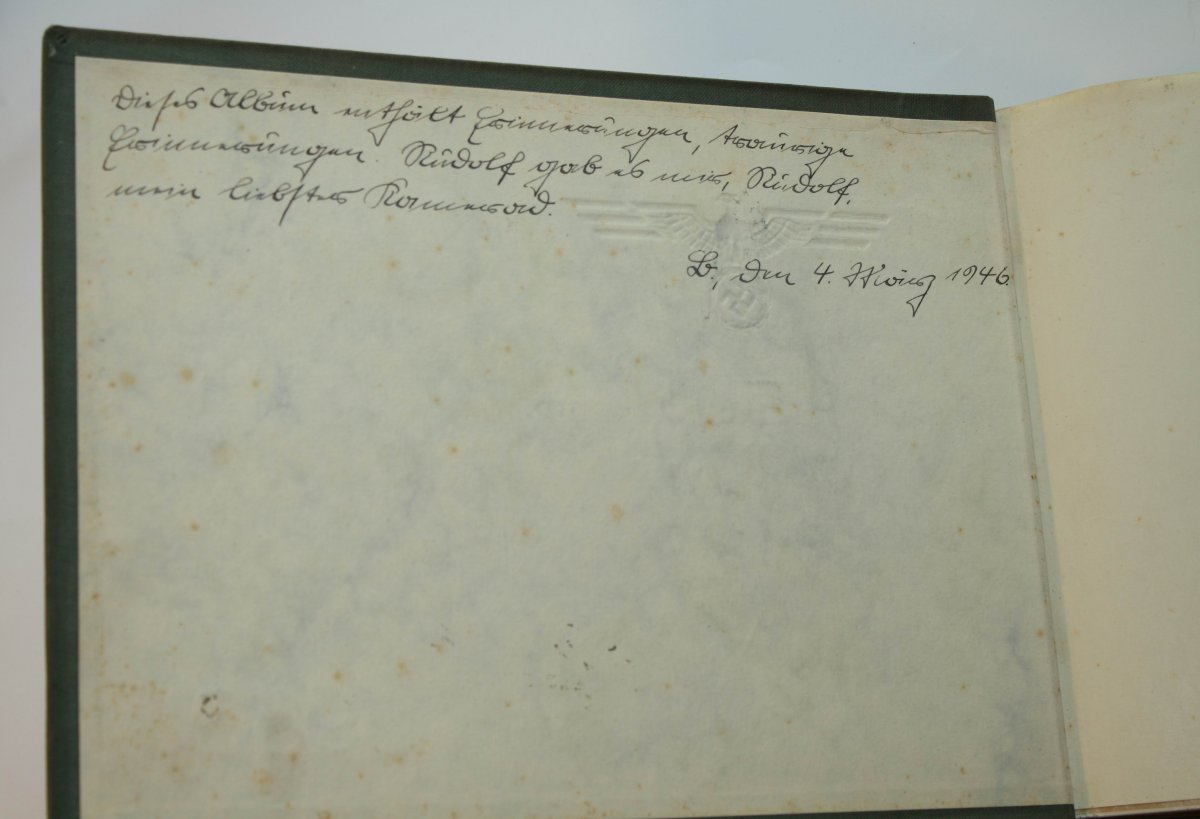 Dieses Album enthält Erinnerungen, traurige
Erinnerungen. Rudolf gab es mir, Rudolf,
mein liebster Kamerad.
B., den 4. März 1946.